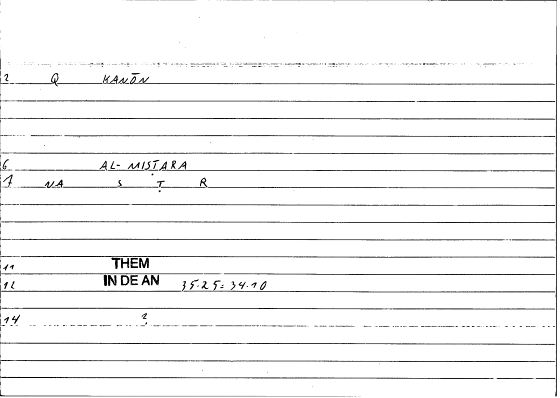 2 Q KANŌN
6 AL-MISṬARA
7 NA S Ṭ R
11 THEM
12 IN DE AN 35.25 = 34.10
14 ?